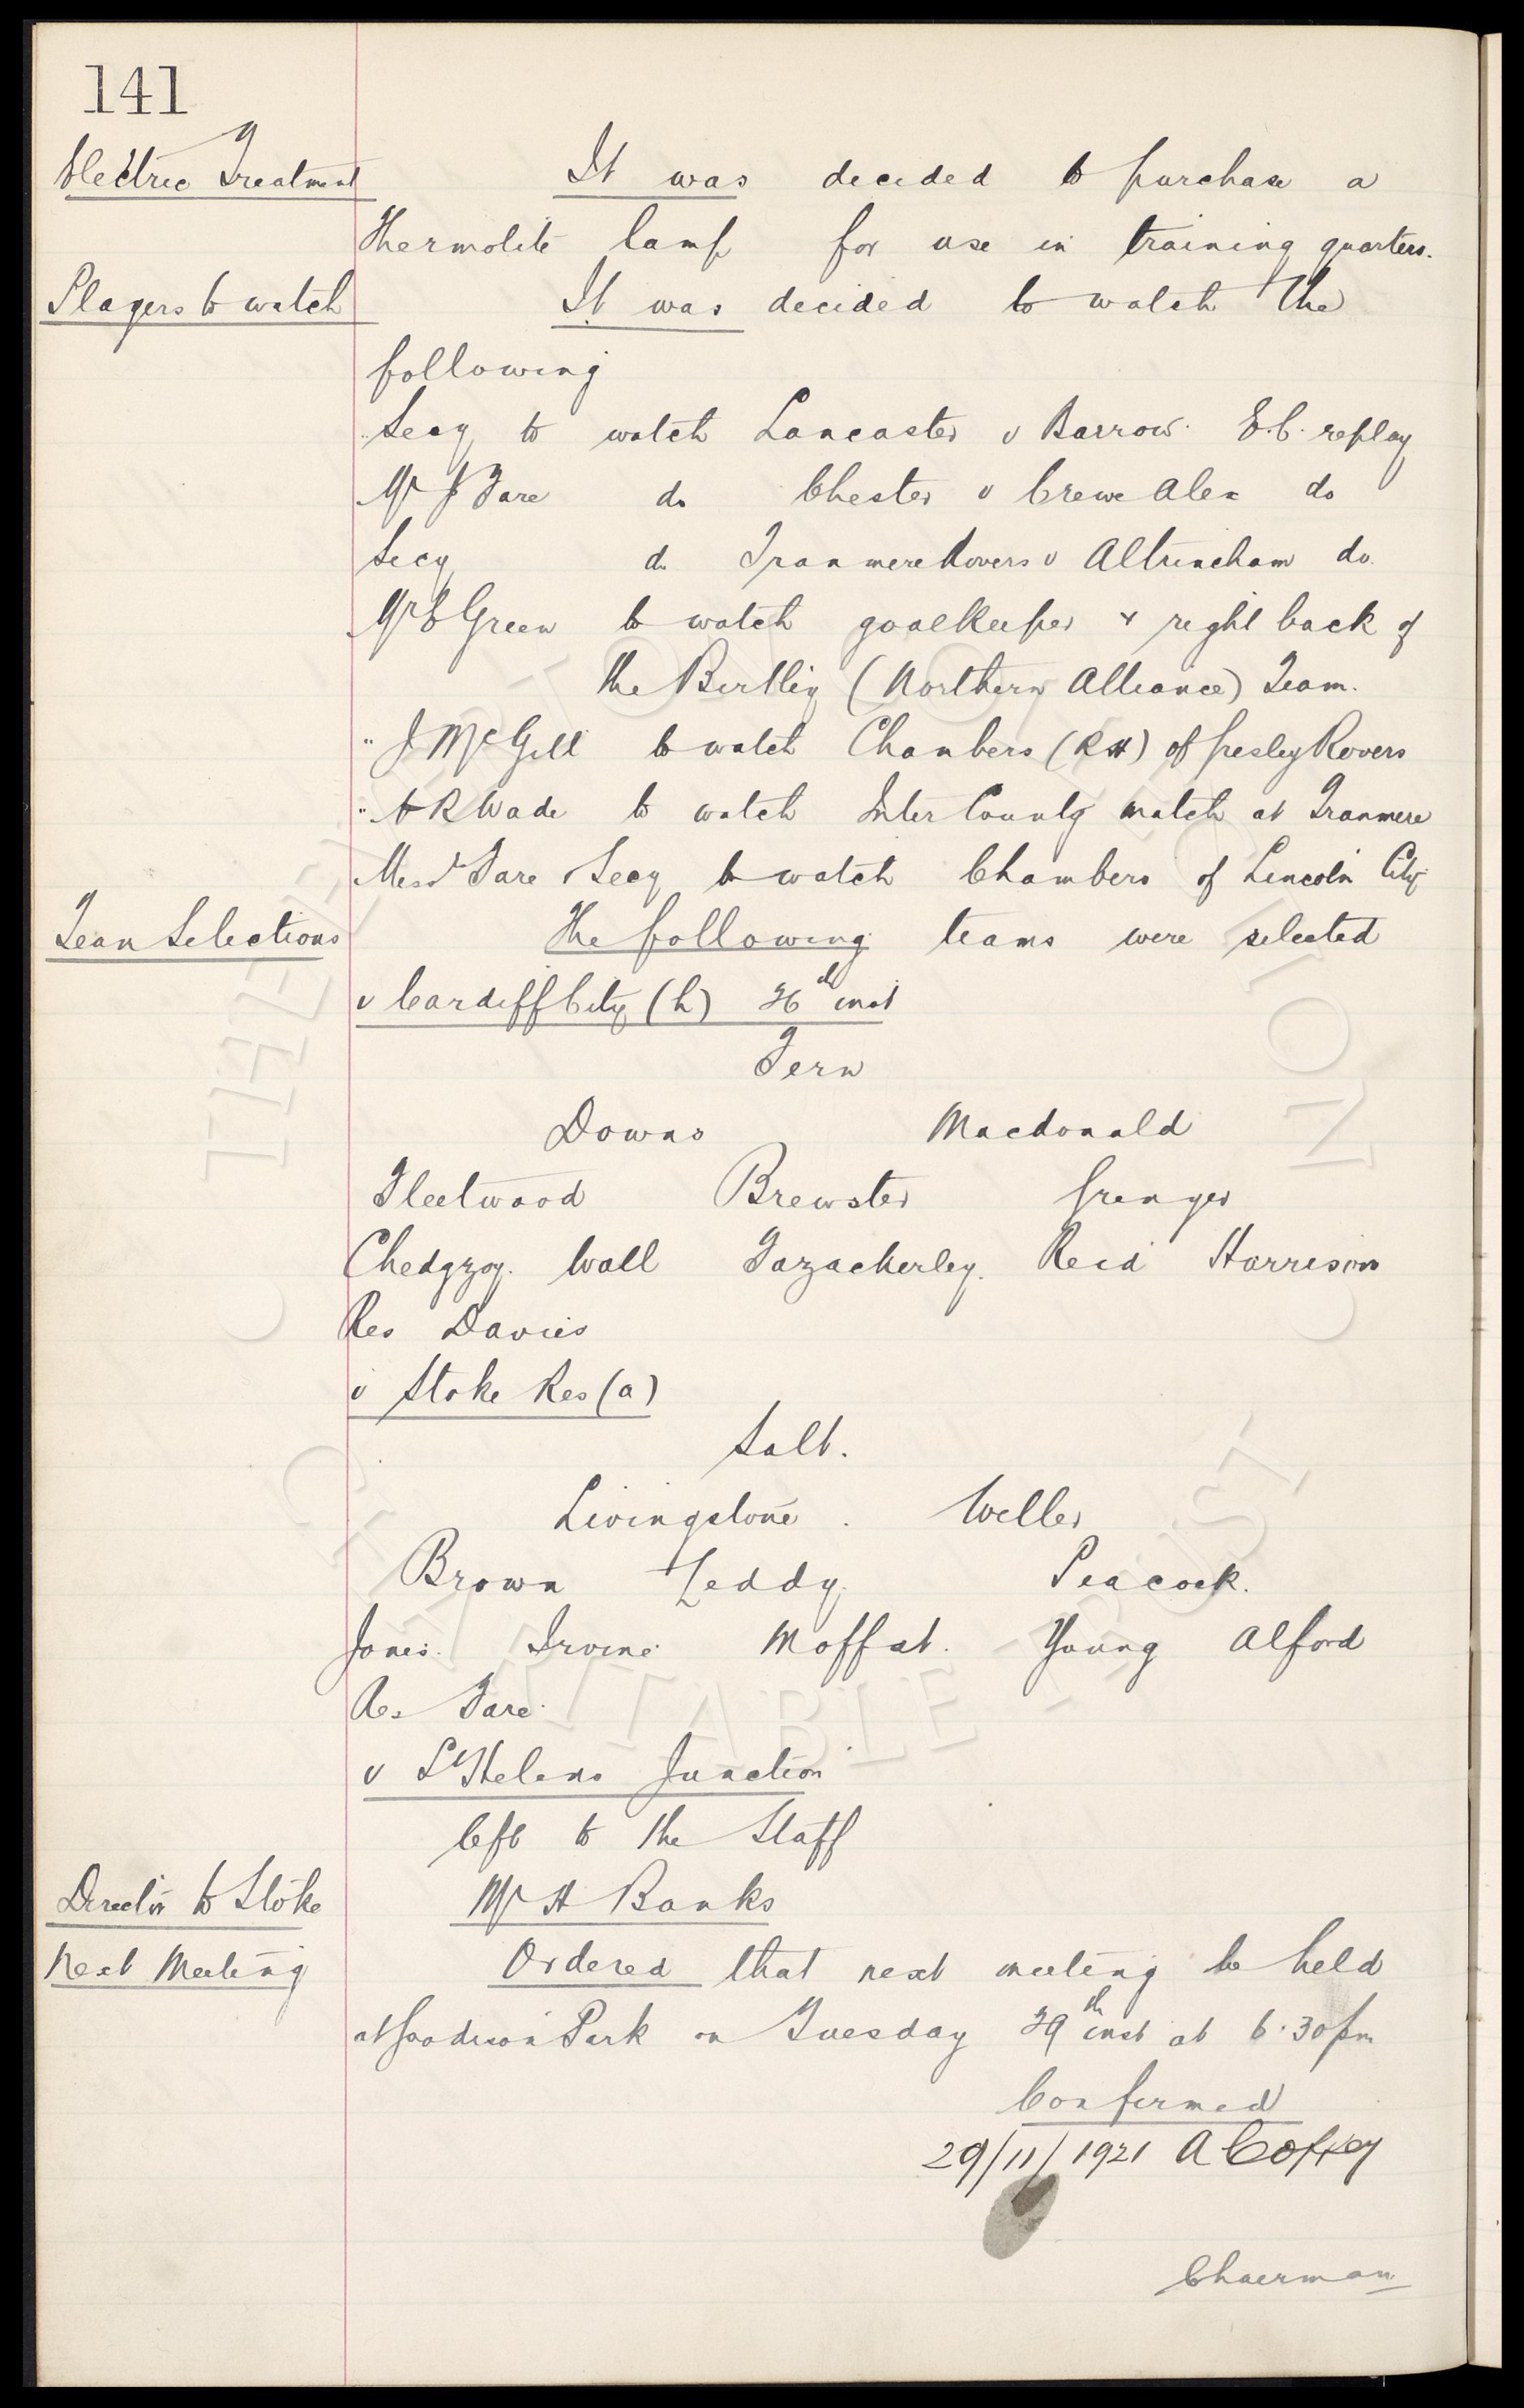 141
Electric Treatment It was decided to purchase a
Thermolite lamp for use in training quarters.
Players to watch It was decided to watch the
following
Secy to watch Lancaster v Barrow. E.C. replay
Mr J Fare do Chester v Crewe Alex do
Secy do Tranmere Rovers v Altrincham do.
Mr E Green to watch goalkeeper & right back of
the Birtley (Northern Alliance) Team.
" J McGill to watch Chambers (RH) of Gresley Rovers
" A R Wade to watch Inter County match at Tranmere
Messrs Fare & Secy to watch Chambers of Lincoln City
Team Selections The following teams were selected
v Cardiff City (h) 26th inst
Fern
Downs Macdonald
Fleetwood Brewster Grenyer
Chedgzoy. Wall Fazackerley. Reid Harrison
Res Davies
v Stoke Res (a)
Salt.
Livingstone. Weller
Brown Leddy. Peacock.
Jones. Irvine. Moffat. Young Alford
Res Fare.
v St Helens Junction
left to the Staff
Director to Stoke Mr H Banks
Next Meeting Ordered that next meeting be held
at Goodison Park on Tuesday 29th inst at 6.30pm
Confirmed
29/11/1921 A Coffey
Chairman